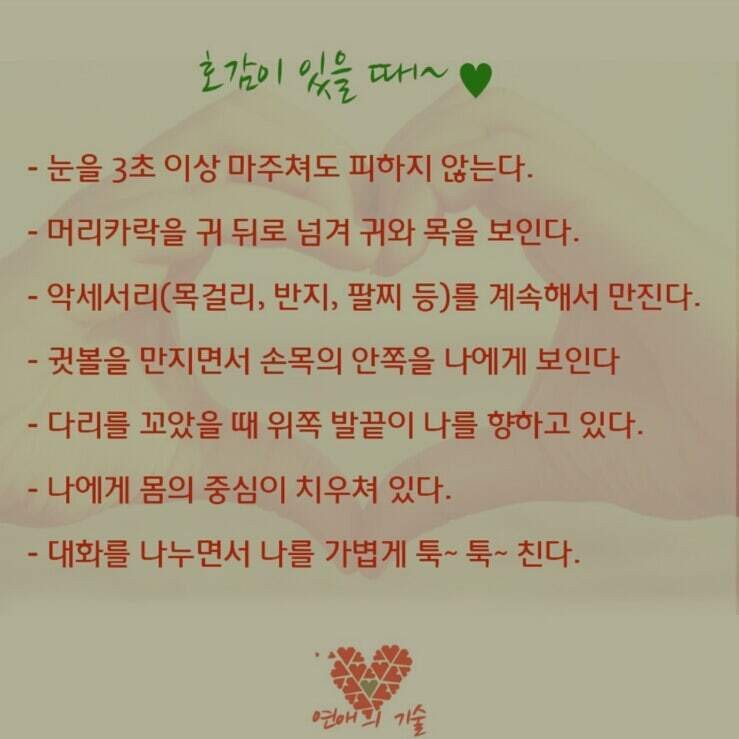 호감이 있을 때~ ♥
- 눈을 3초 이상 마주쳐도 피하지 않는다.
- 머리카락을 귀 뒤로 넘겨 귀와 목을 보인다.
- 악세서리(목걸리, 반지, 팔찌 등)를 계속해서 만진다.
- 귓볼을 만지면서 손목의 안쪽을 나에게 보인다
- 다리를 꼬았을 때 위쪽 발끝이 나를 향하고 있다.
- 나에게 몸의 중심이 치우쳐 있다.
- 대화를 나누면서 나를 가볍게 툭~ 툭~ 친다.
연애의 기술